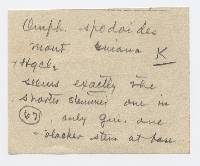 Omph. spodoides
mont Guiana K
+ HgCl₂
seems exactly the
shorter stemmed one in
67 , only gui. one
blacker stem at base